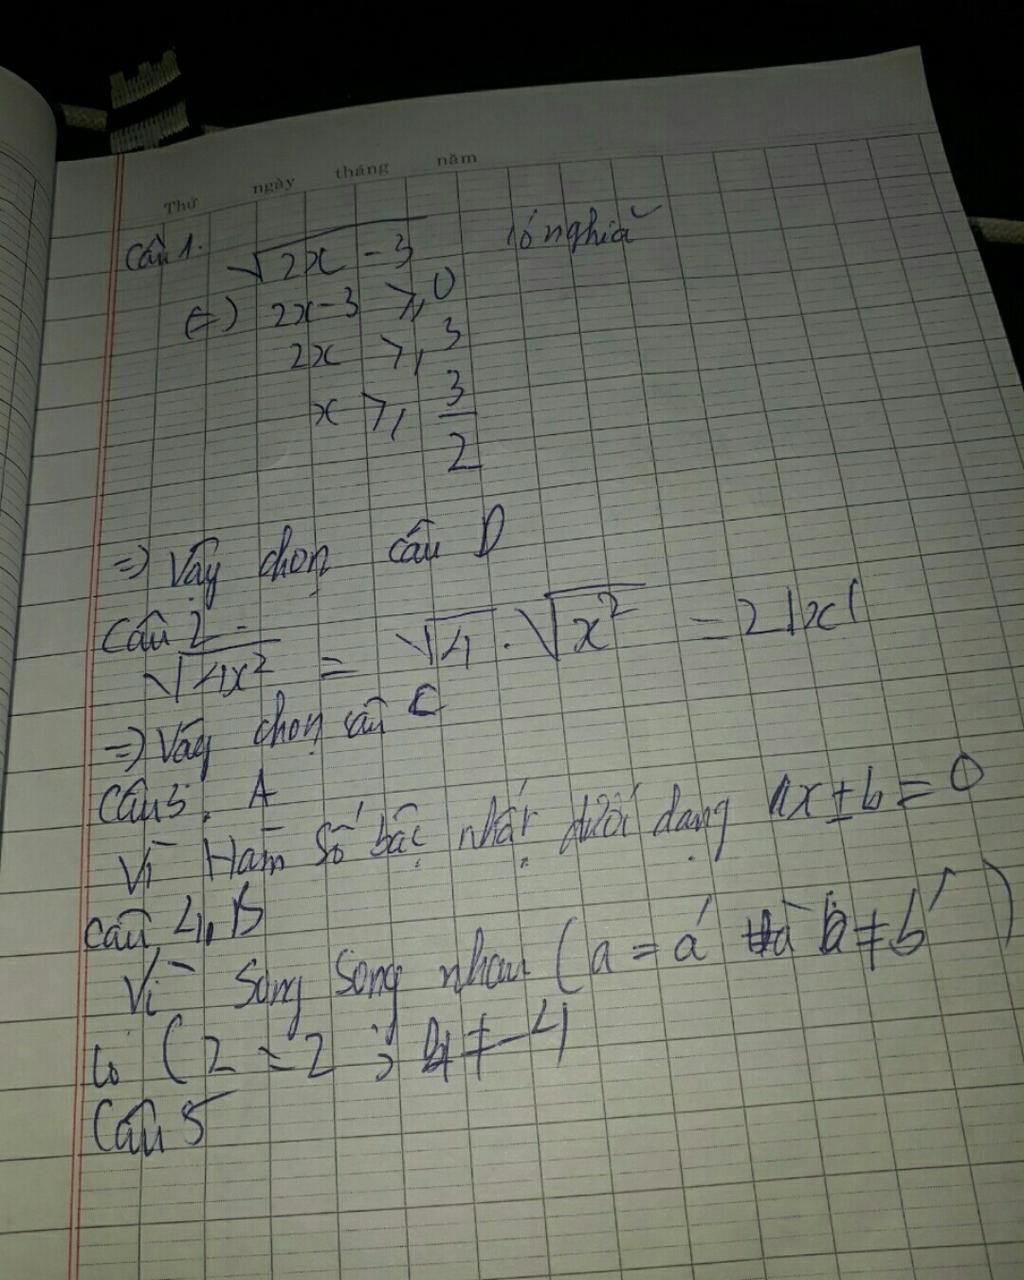 Thứ ngày tháng năm
Câu 1. √2x - 3 có nghĩa
(=) 2x-3 ≥ 0
2x ≥ 3
x ≥ 3/2
=) Vậy chọn câu D
Câu 2.
√4x² = √4 . √x² = 2|x|
=) Vậy chọn câu C
Câu 3. A
Vì Hàm số bậc nhất dưới dạng ax+b=0
Câu 4, B
Vì song song nhau (a = a' và b ≠ b')
Có (2 = 2 ; 4 ≠ -4
Câu 5